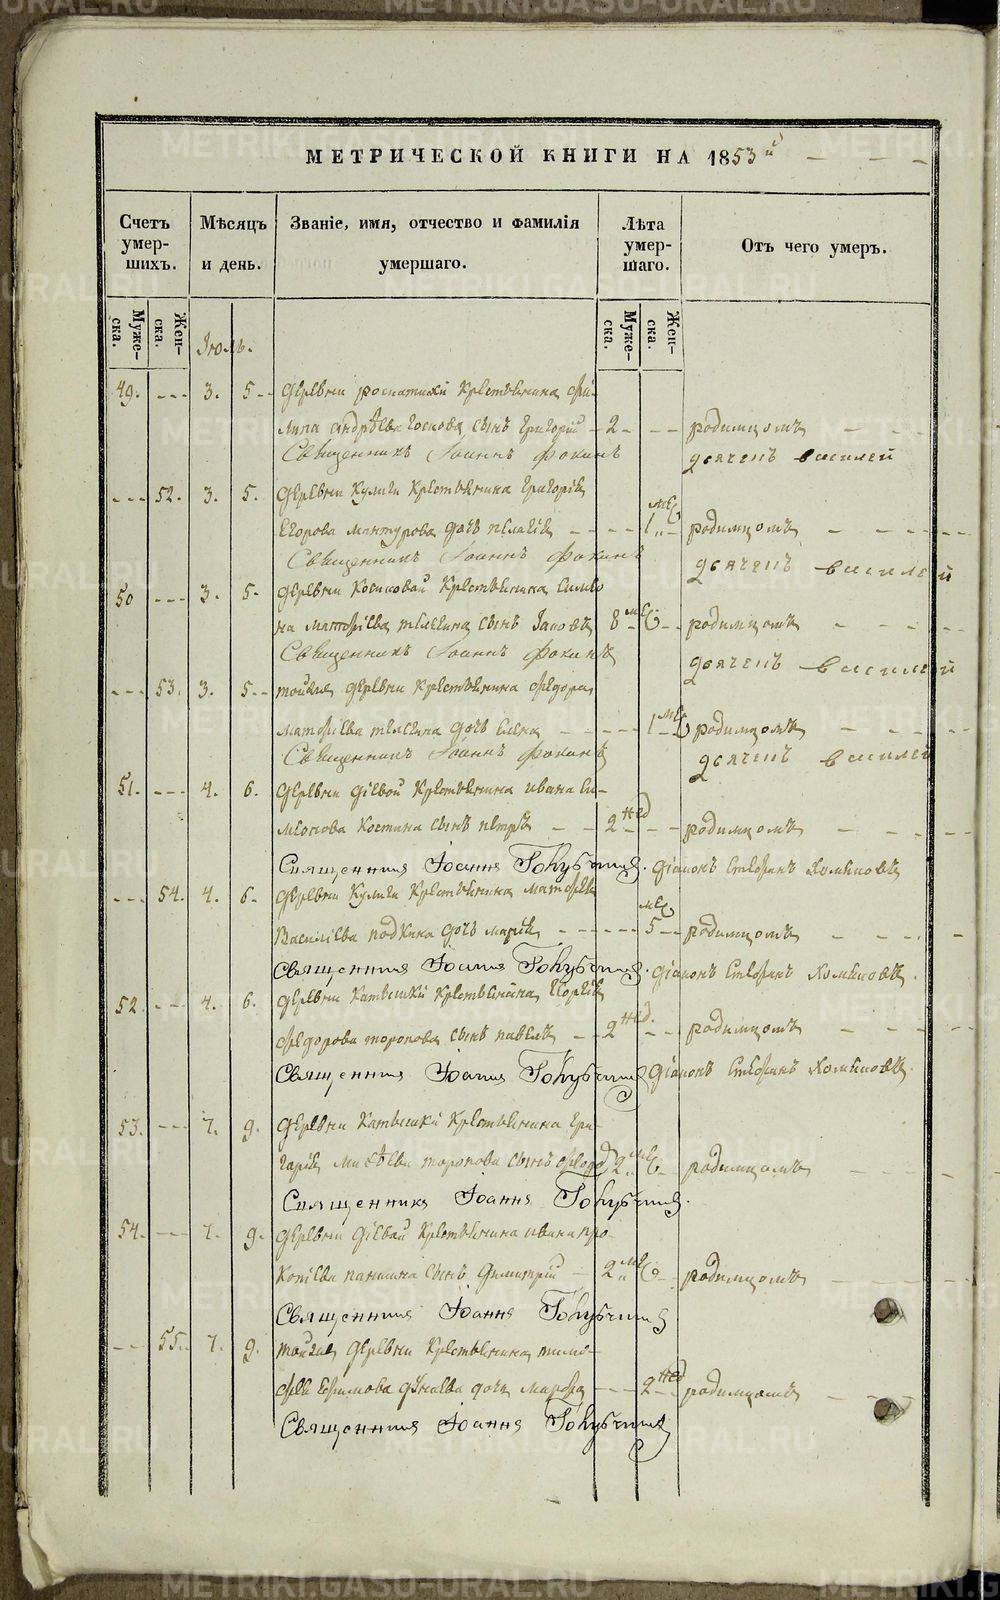 МЕТРИЧЕСКОЙ КНИГИ НА 1853й
Счетъ умер- шихъ.
Мѣсяцъ и день.
Званіе, имя, отчество и фамилія умершаго.
Лѣта умер- шаго.
Отъ чего умеръ.
Муже- ска.
Жен- ска.
Муже- ска.
Жен- ска.
Іюль.
49. 3. 5 деревни крестьянина Фи-
липа Андрѣева сынъ Григорій 2 родимцомъ
Священникъ Іоаннъ Фокинъ дьячекъ Василей
52. 3. 5. деревни Кулиги крестьянина Григорія
Егорова Мантурова дочь Пелагія 1 мѣс родимцомъ
Священникъ Іоаннъ Фокинъ дьячекъ Василей
50 3. 5. деревни Косиковой крестьянина Симео
на Матфіева сынъ Іаковъ 8 мѣс родимцомъ
Священникъ Іоаннъ Фокинъ дьячекъ Василей
53. 3. 5 тойже деревни крестьянина Федора
Матфіева дочь Елена 1 мѣс родимцомъ
Священникъ Іоаннъ Фокинъ дьячекъ Василей
51. 4. 6. деревни Діевой крестьянина Ивана Си-
меонова Костина сынъ Петръ 2 нед родимцомъ
Священникъ Іоаннъ діаконъ Стефанъ Хомяковъ
54. 4. 6. деревни Кулиги крестьянина Матфея
Василіева дочь Марія 5 мѣс родимцомъ
Священникъ Іоаннъ діаконъ Стефанъ Хомяковъ.
52. 4. 6. деревни Катышки крестьянина Георгія
Федорова Торопова сынъ Павелъ 2 нед. родимцомъ
Священникъ Іоаннъ діаконъ Стефанъ Хомяковъ.
53. 7. 9. деревни Катышки крестьянина Гри-
горія Торопова сынъ Федоръ 2 мѣс родимцомъ
Священникъ Іоаннъ
54. 7. 9. деревни Діевой крестьянина Ивана Про-
копіева Паншина сынъ Димитрій 2 мѣс родимцомъ
Священникъ Іоаннъ
55. 7. 9. тойже деревни крестьянина Тимо-
фея Ефимова дочь Марфа 2 нед родимцомъ
Священникъ Іоаннъ
METRIKI.GASO-URAL.RU